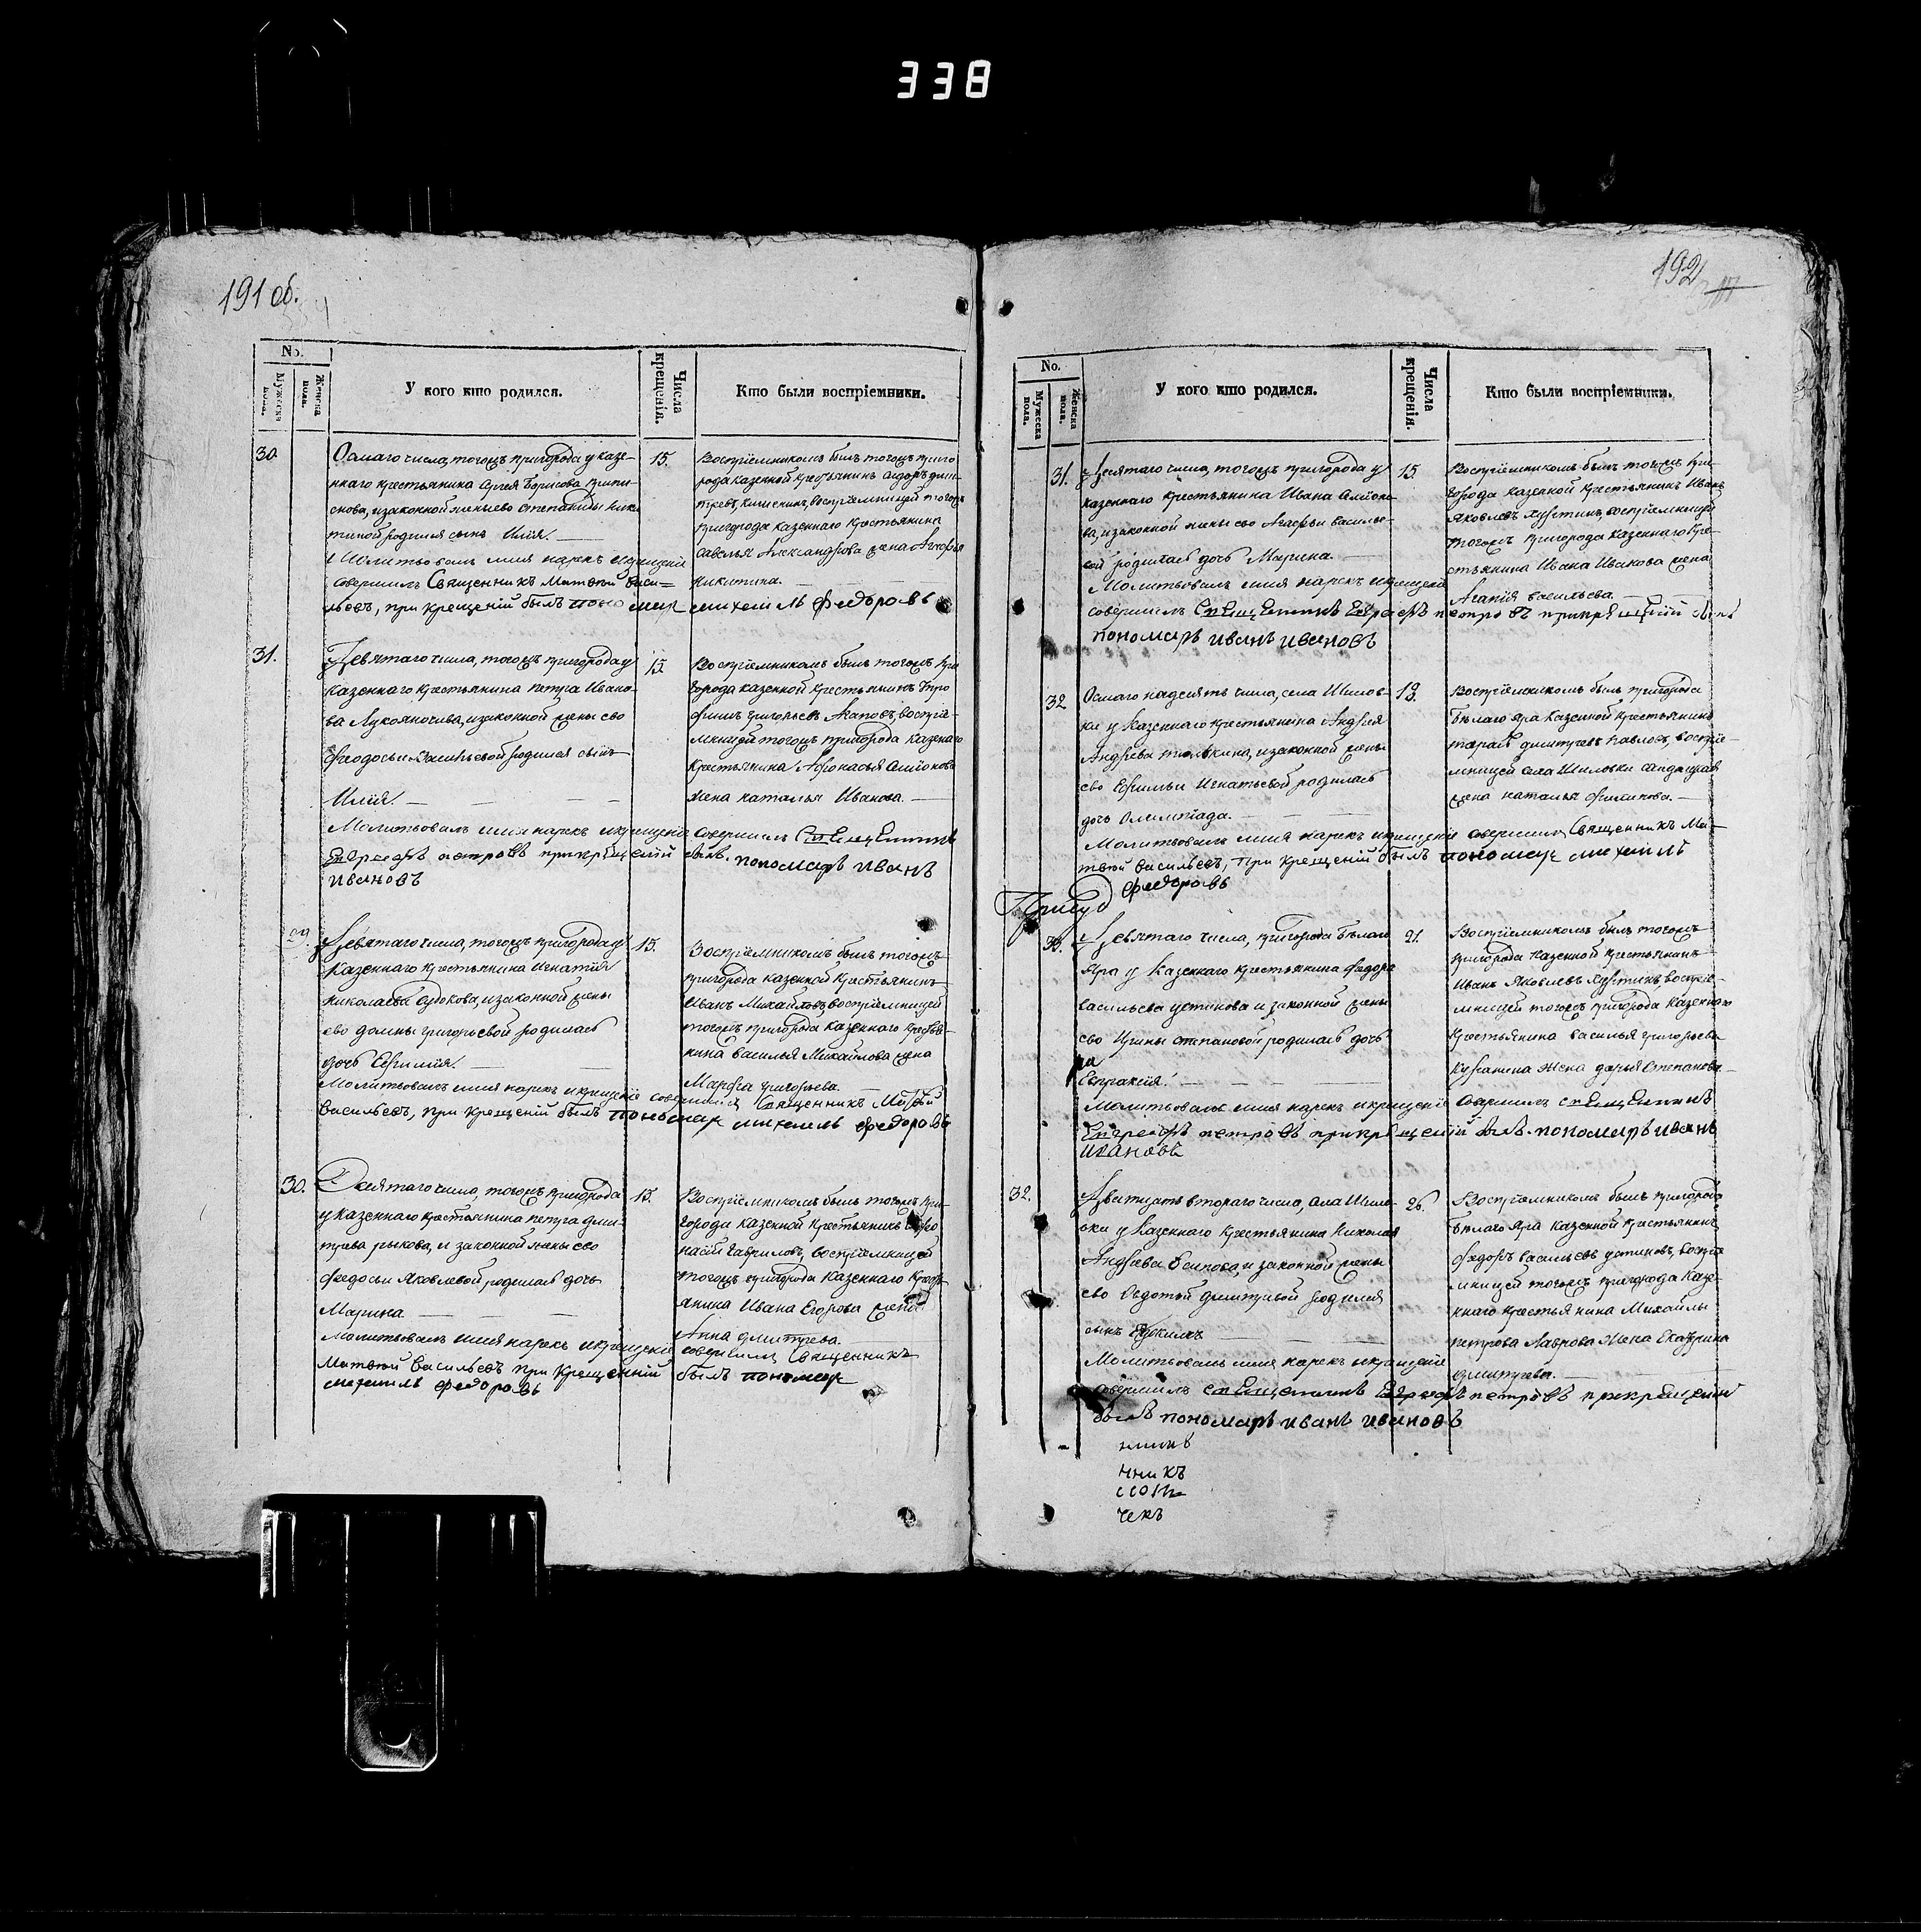 338
191 об.
No.
Мужеска пола.
Женска пола.
У кого кто родился.
Числа крещенія.
Кто были воспріемники.
30
Осмаго числа, тогожъ пригорода у казе-
ннаго крестьянина Сергея Борисова
снова, изаконной жены ево Степаниды Ники
тиной родился сынъ Илія.
Молитвовалъ имя нарекъ икрещеніе
совершилъ Священникъ Матвей Васи=
льевъ, при крещеній былъ пономар михеилъ Федоровъ
15.
Воспріемникомъ былъ тогожъ приго
рода казенной крестьянинъ Сидоръ дми
тревъ, воспріемницей тогожъ
пригорода казеннаго крестьянина
савелья Александрова жена Агафья
Никитина.
31.
Девятаго числа, тогожъ пригорода у
казеннаго крестьянина петра Ивано-
ва Лукоянычива, изаконной жены ево
Феодосьи Васильевой родился сынъ
Илія.
Молитвовалъ имя нарекъ икрещеніе совершилъ Священникъ
Евграфъ петровъ прикрещеній былъ. пономарь иванъ
ивановъ
15
Воспріемникомъ былъ тогожъ при
города казенной крестьянинъ Тро
фимъ григорьевъ Агаповъ, воспріе-
мницей тогожъ пригорода казенаго
крестьянина Афонасья Семіонова
жена наталья Иванова.
29.
Девятаго числа, тогожъ пригорода у
Казеннаго крестьянина игнатія
николаева Судокова, изаконной жены
ево домны григорьевой родилась
дочь Евфимія.
Молитвовалъ имя нарекъ икрещеніе совершилъ Священникъ Матвей
Васильевъ, при крещеній былъ пономар михеилъ Федоровъ
15.
Воспріемникомъ былъ тогожъ
пригорода казенной крестьянинъ
Иванъ Михайловъ, воспріемницей
тогожъ пригорода казеннаго крестья-
нина василья Михайлова жена
Марфа григорьева.
30.
Десятаго числа, тогожъ пригорода
у казеннаго крестьянина петра дми-
трева рыкова, и законной жены ево
Федосьи Яковлевой родилась дочь
Марина
Молитвовалъ имя нарекъ икрещеніе совершилъ Священникъ
Матвей Васильевъ при крещеній былъ пономар
михеилъ Федоровъ
15.
Воспріемникомъ былъ тогожъ при-
города казенной крестьянинъ
Гавриловъ, воспріемницей
тогожъ пригорода казеннаго крест
янина Ивана Егорова жена
Анна дмитрева.
192
No.
Мужеска пола.
Женска пола.
У кого кто родился.
Числа крещенія.
Кто были воспріемники.
31.
Десятаго числа, тогожъ пригорода у
казеннаго крестьянина Ивана Семіоно
ва, изаконной жены ево Агафьи василье-
вой родилась дочь Марина.
Молитвовалъ имя нарекъ икрещеніе
совершилъ Священникъ Евграфъ петровъ прикрещеній былъ
пономарь иванъ ивановъ
15.
Воспріемникомъ былъ тогожъ при-
города казенной крестьянинъ Иванъ
Яковлевъ, воспріемницей
тогожъ пригорода казеннаго кре-
стьянина Ивана Ивакова жена
Агапія васильева.
32
Осмаго надесять числа, села Шилов-
ки у казеннаго крестьянина Андрея
Андреева изаконной жены
ево Ефимьи Игнатьевой родилась
дочь Олимпіада.
Молитвовалъ имя нарекъ икрещеніе совершилъ Священникъ Ма-
твей Васильевъ, при крещеній былъ пономар михеилъ
Федоровъ
19.
Воспріемникомъ былъ пригорода
Бѣлаго яра казенной крестьянинъ
тарасъ дмитревъ Павловъ, воспріе-
мницей села Шиловки
жена наталья филипова.
33.
Девятаго числа, пригорода Бѣлаго
яра у казеннаго крестьянина Федора
васильева устинова и законной жены
ево Ирины степановой родилась дочь
Евпраксія.
Молитвовалъ имя нарекъ икрещеніе совершилъ Священникъ
Евграфъ петровъ прикрещеній былъ. пономарь иванъ
ивановъ
21.
Воспріемникомъ былъ тогожъ
пригорода казенной крестьянинъ
Иванъ Яковлевъ, воспріе-
мницей тогожъ пригорода казеннаго
крестьянина василья григорьева
жена дарья Степанова.
32.
Дватцать втораго числа, села Шило-
вки у казеннаго крестьянина Николая
Андреева Осипова, и законной жены
ево Овдотьи димитривой родился
сынъ
Молитвовалъ имя нарекъ икрещеніе
совершилъ Священникъ Евграфъ петровъ прикрещеній
былъ пономарь иванъ ивановъ
26.
Воспріемникомъ былъ пригорода
Бѣлаго яра казенной крестьянинъ
Федоръ васильевъ устиновъ, воспріе
мницей тогожъ пригорода казе-
ннаго крестьянина Михайлы
петрова Лаврова жена Екатерина
дмитрева.
нникъ
чекъ